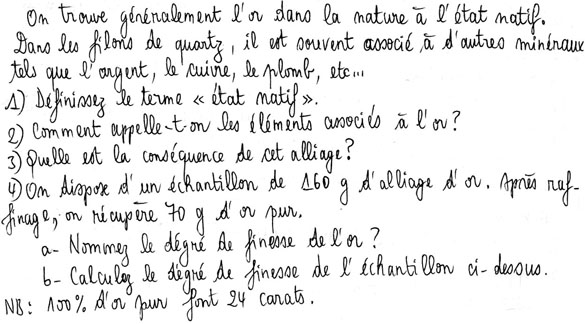 On trouve généralement l'or dans la nature à l'état natif.
Dans les filons de quartz, il est souvent associé à d'autres minéraux
tels que l'argent, le cuivre, le plomb, etc...
1) Définissez le terme « état natif ».
2) Comment appelle-t-on les éléments associés à l'or ?
3) Quelle est la conséquence de cet alliage ?
4) On dispose d'un échantillon de 160 g d'alliage d'or. Après raf-
finage, on récupère 70 g d'or pur.
a- Nommez le dégré de finesse de l'or ?
b- Calculez le dégré de finesse de l'échantillon ci-dessus.
NB : 100% d'or pur font 24 carats.